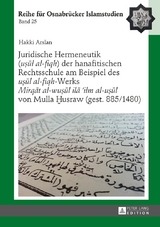 Reihe für Osnabrücker Islamstudien
Band 25
Hakkı Arslan
Juridische Hermeneutik
(uṣūl al-fiqh) der hanafitischen
Rechtsschule am Beispiel des
uṣūl al-fiqh-Werks
Mirqāt al-wuṣūl ilā ʿilm al-uṣūl
von Mulla Ḫusraw (gest. 885/1480)
PETER LANG
EDITION